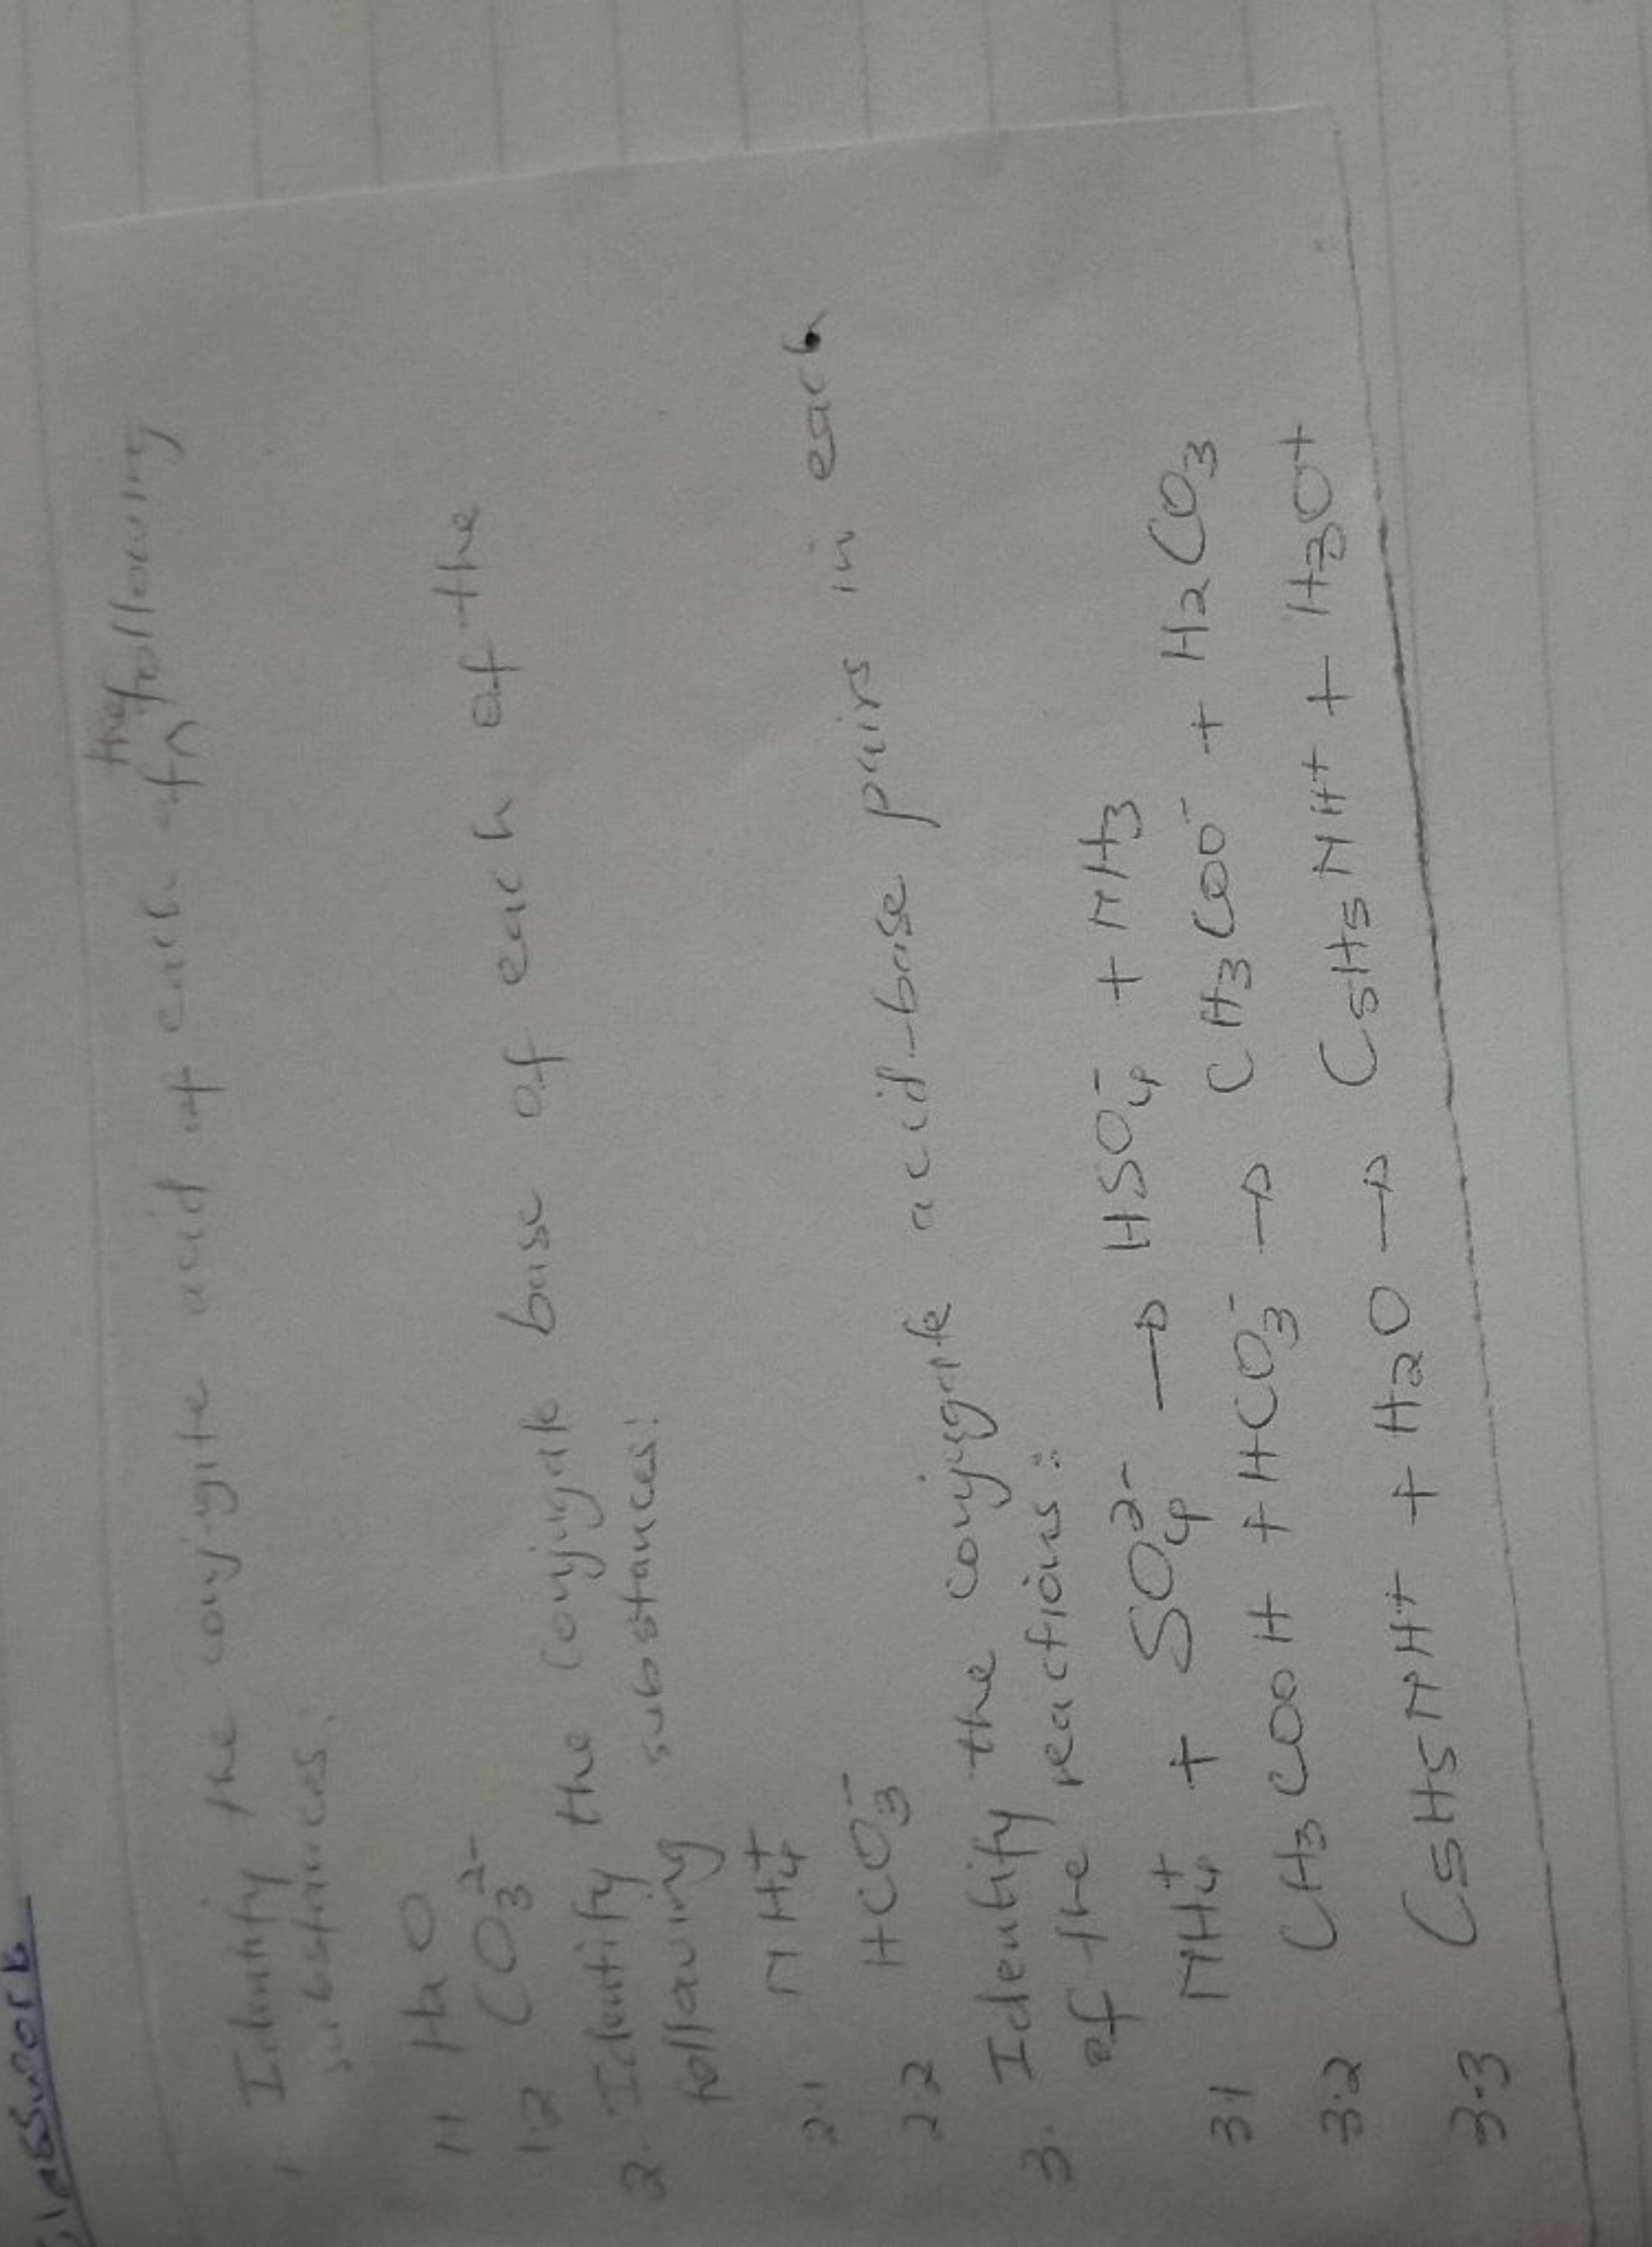 Classwork
1. Identify the conjugate acid of each of the following
substances:
1.1 H2O
1.2 CO3^2-
2. Identify the conjugate base of each of the
following substances:
2.1 NH4^+
2.2 HCO3^-
3. Identify the conjugate acid-base pairs in each
of the reactions:
3.1 NH4^+ + SO4^2- → HSO4^- + NH3
3.2 CH3COOH + HCO3^- → CH3COO^- + H2CO3
3.3 C5H5NH^+ + H2O → C5H5NH^+ + H3O^+